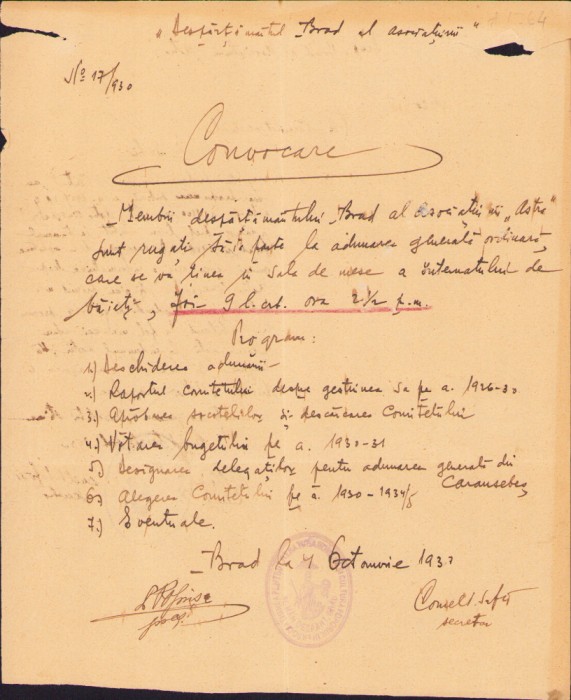 "Despărțământul Brad al asociațiunii"
No 17/930
Convocare
Membrii despărțământului Brad al Asociațiunii "Astra"
sunt rugați să ia parte la adunarea generală ordinară,
care se va ținea în sala de mese a internatului de
băieți, Joi 9 l. crt. ora 2 1/2 p.m.
Program:
1.) Deschiderea adunării
2.) Raportul comitetului despre gestiunea sa pe a. 1926-30
3.) Aprobarea socotelilor și descărcarea Comitetului
4.) Votarea bugetului pe a. 1930-31
5.) Designarea delegaților pentru adunarea generală din
Caransebeș
6.) Alegerea Comitetului pe a. 1930-1934/5
7.) Eventuale.
Brad la 4 Octomvrie 193
secretar